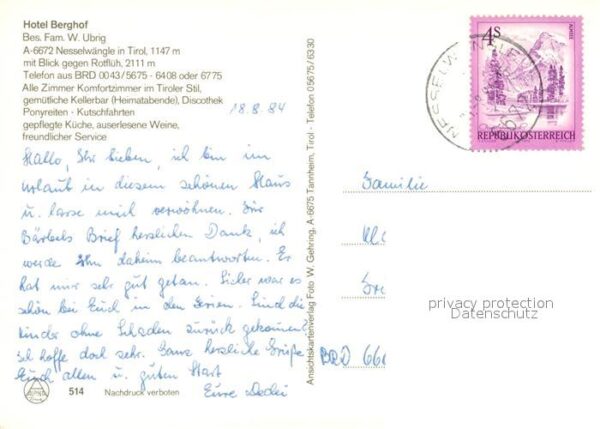 Hotel Berghof
Bes. Fam. W. Ubrig
A-6672 Nesselwängle in Tirol, 1147 m
mit Blick gegen Rotflüh, 2111 m
Telefon aus BRD 0043/5675 - 6408 oder 6775
Alle Zimmer Komfortzimmer im Tiroler Stil,
gemütliche Kellerbar (Heimatabende), Discothek
Ponyreiten - Kutschfahrten
gepflegte Küche, auserlesene Weine,
freundlicher Service
18.8.84
Hallo, Ihr Lieben, ich bin im
Urlaub in diesem schönen Haus
u. lasse mich verwöhnen. Für
Bärbels Brief herzlichen Dank, ich
werde ihn daheim beantworten. Er
hat mir sehr gut getan. Sicher war es
schön bei Euch in den Ferien. Sind die
Kinder ohne Schaden zurück gekommen?
Ich hoffe doch sehr. Ganz herzliche Grüße
Euch allen u. guten Start
Eure
514 Nachdruck verboten
Ansichtskartenverlag Foto W. Gehring, A-6675 Tannheim, Tirol - Telefon 05675/6330
4S
ALMSEE
REPUBLIK ÖSTERREICH
Familie
BRD 666
privacy protection
Datenschutz